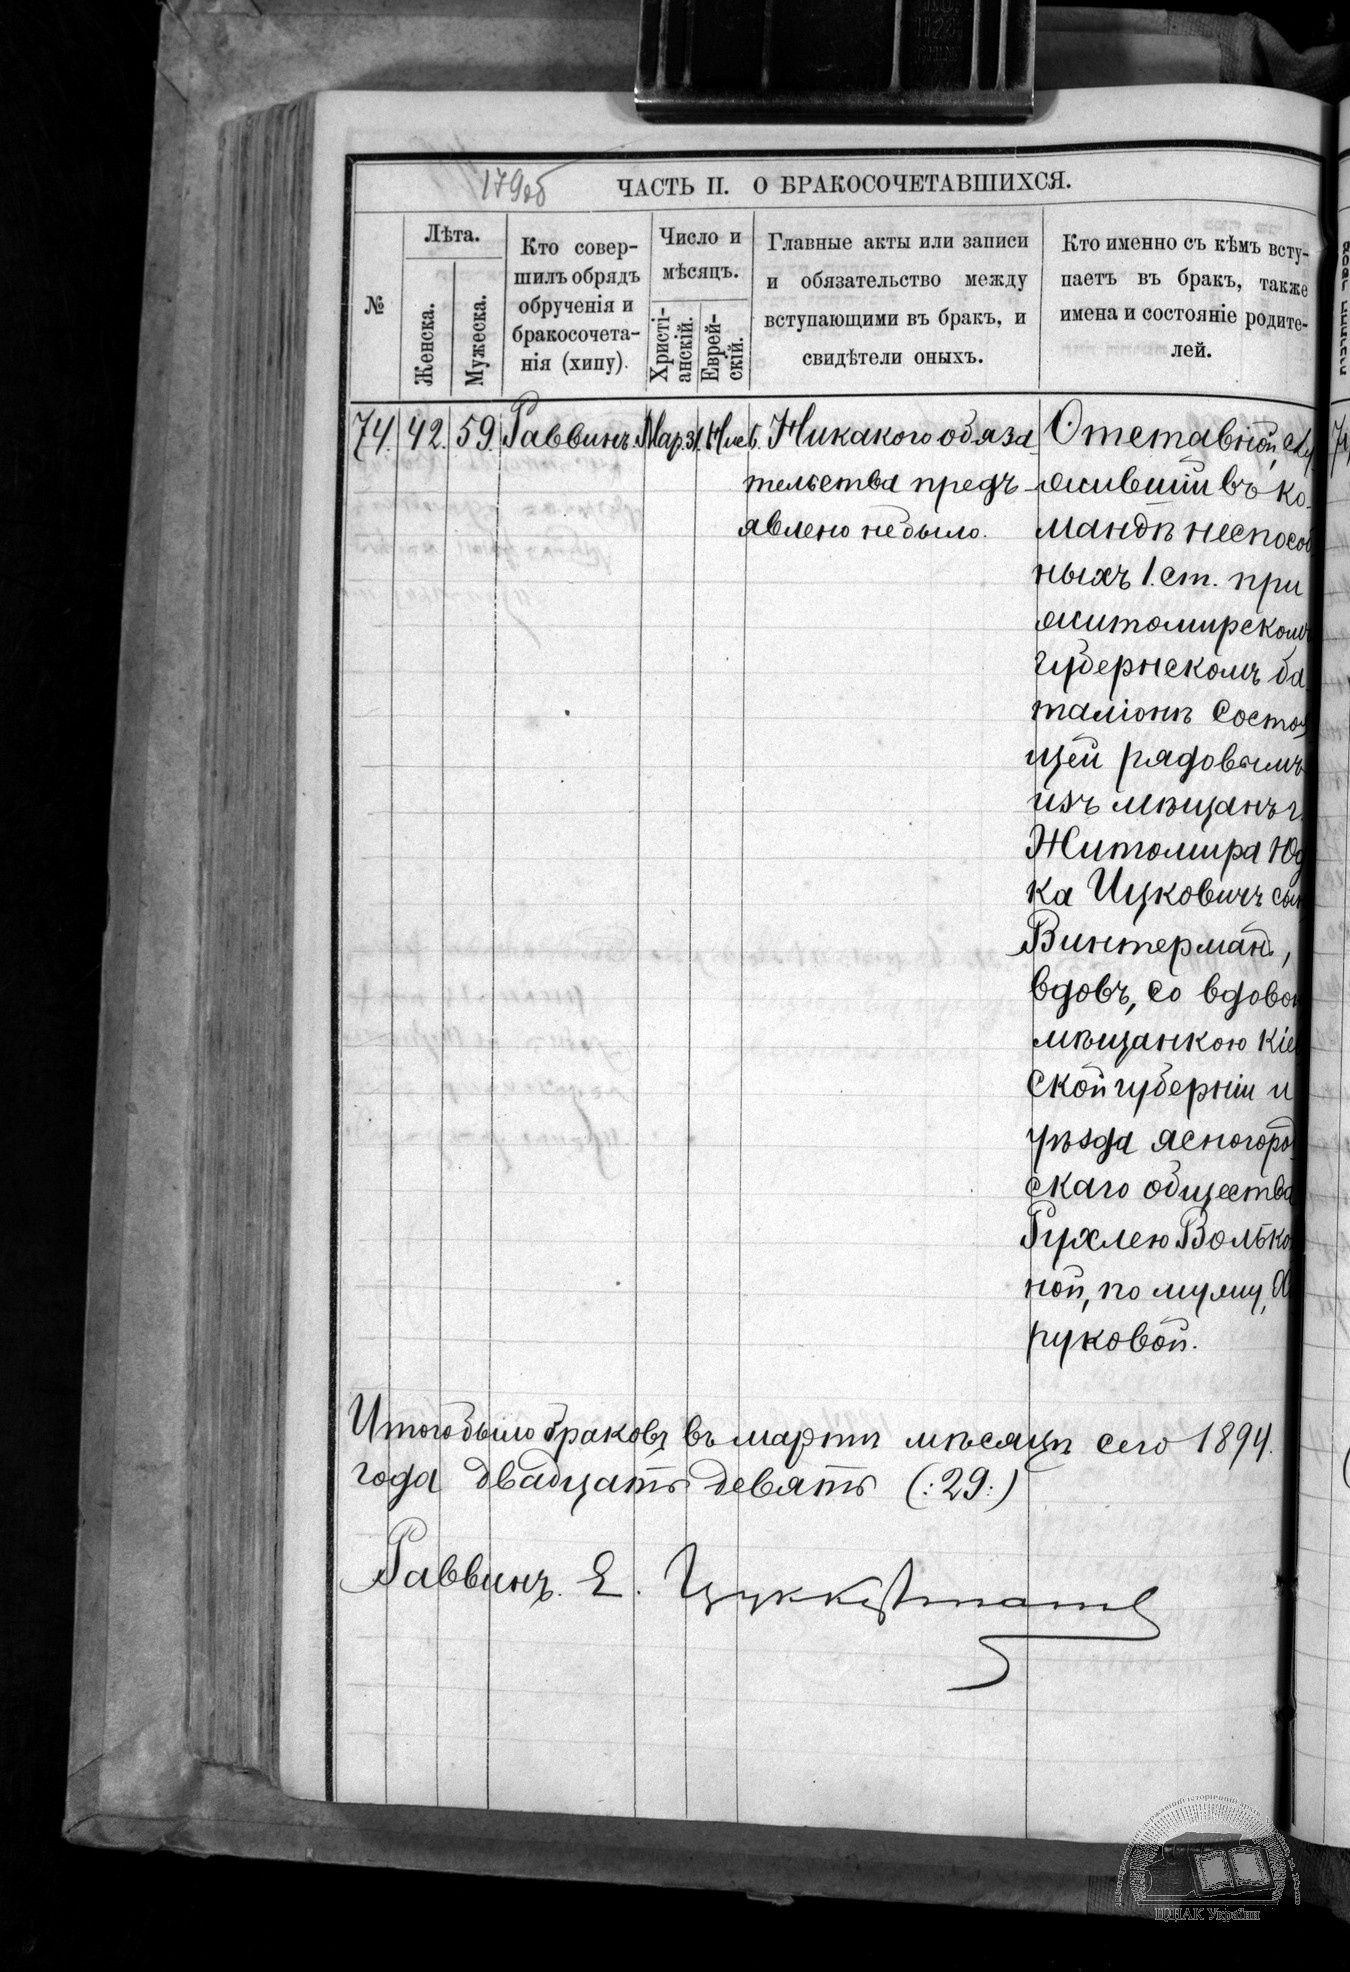 179об
ЧАСТЬ II. О БРАКОСОЧЕТАВШИХСЯ.
№
Лѣта.
Женска.
Мужеска.
Кто совер-
шилъ обрядъ
обрученія и
бракосочета-
нія (хипу).
Число и
мѣсяцъ.
Христі-
анскій.
Еврей-
скій.
Главные акты или записи
и обязательство между
вступающими въ бракъ, и
свидѣтели оныхъ.
Кто именно съ кѣмъ всту-
паетъ въ бракъ, также
имена и состояніе родите-
лей.
74. 42. 59. Раввинъ. Мар. 31. Никакого обяза-
тельства предъ-
явлено небыло.
Отставной, слу
жившій въ ко-
мандѣ неспособ
ныхъ 1. ст. при
житомирскомъ
губернскомъ ба-
таліонѣ состоя
щей рядовымъ
изъ мѣщанъ г.
Житомира Юд
ка Ицковичъ сын
Винтерман,
вдовъ, со вдовою
мѣщанкою кіев
ской губерніи и
уѣзда ясногород
скаго общества
Рухлею Волько
ной, по мужу,
руковой.
Итого было браковъ въ мартѣ мѣсяцѣ сего 1894.
года двадцать девять (:29:)
Раввинъ. Е. Цуккерманъ
ЦДІАК України